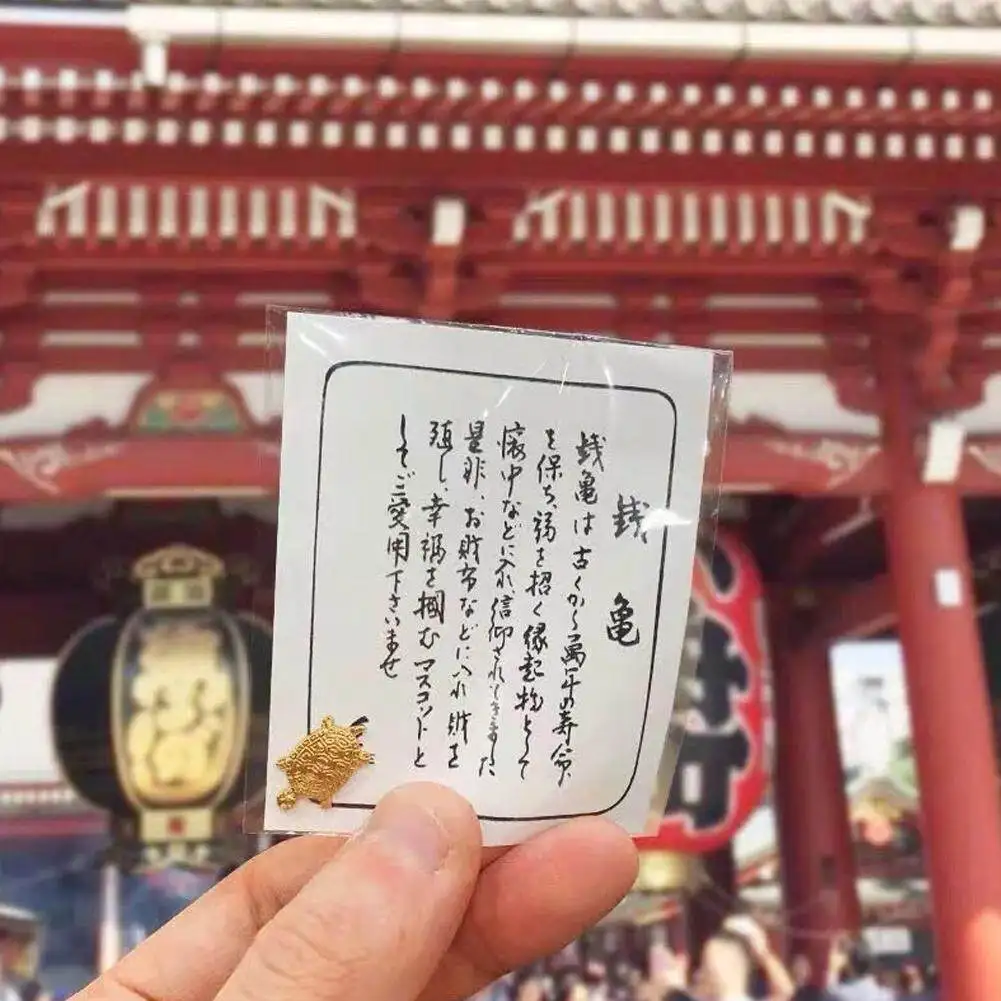 銭亀
銭亀は古くから萬年の寿命
を保ち、福を招く縁起物として
懐中などに入れ信仰されてきました
是非、お財布などに入れ財を
殖し、幸福を掴むマスコットと
してご愛用下さいませ